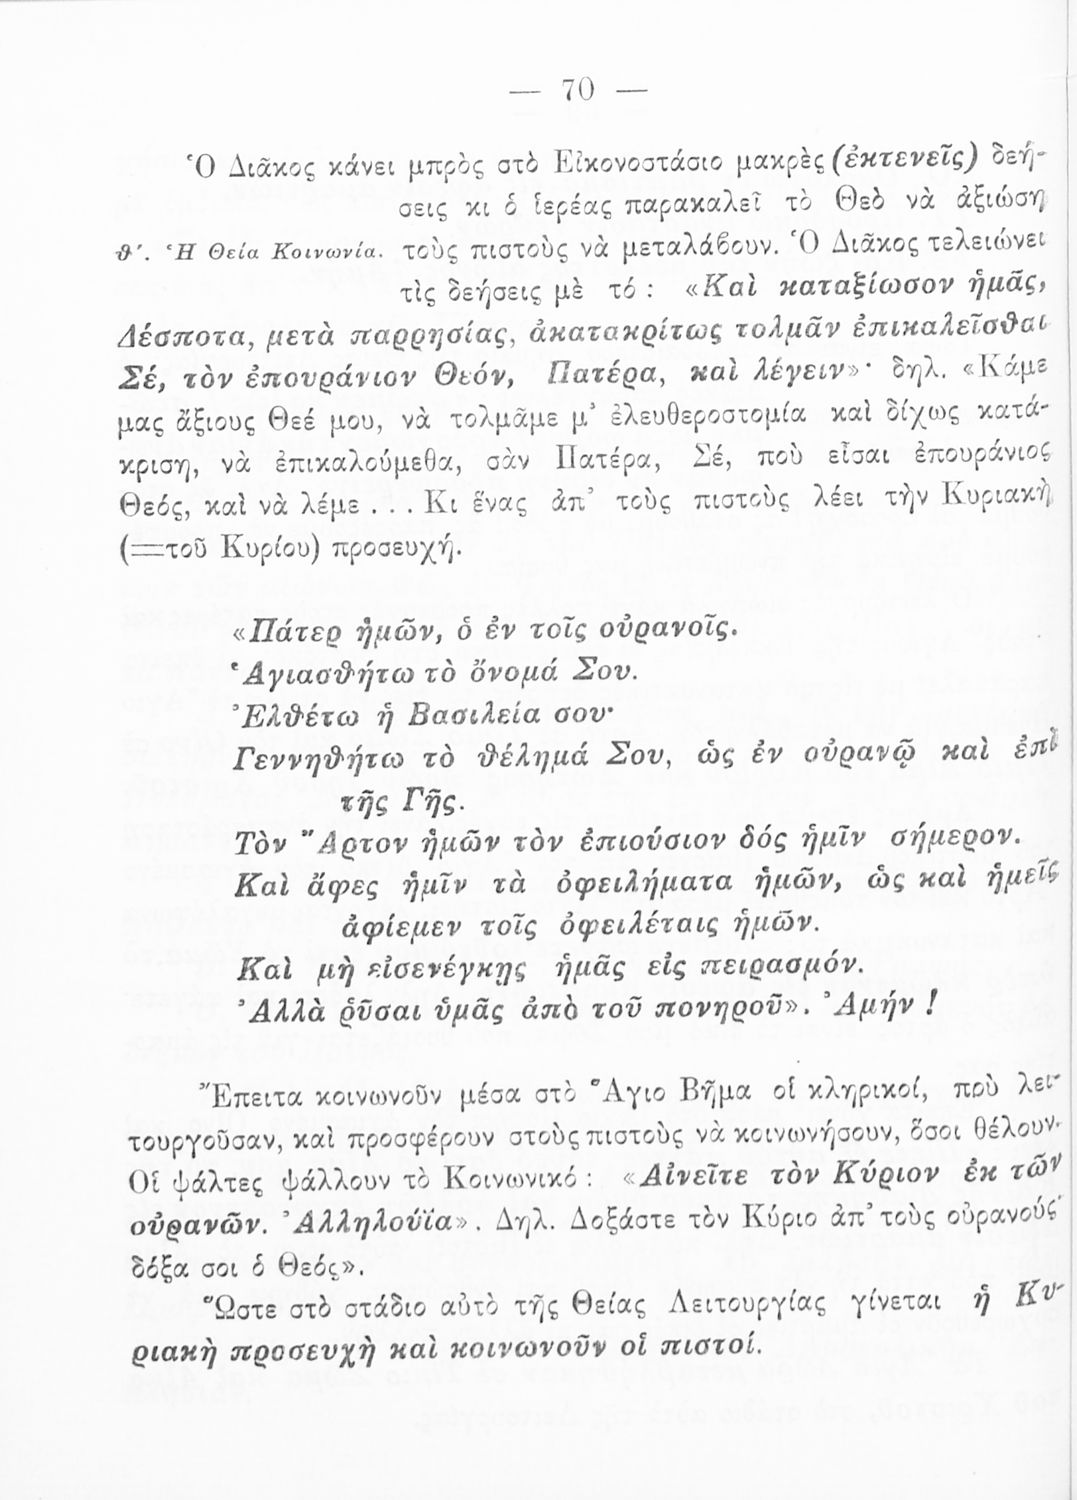 — 70 —
Ὁ Διᾶκος κάνει μπρὸς στὸ Εἰκονοστάσιο μακρὲς (ἐκτενεῖς) δεή-
σεις κι ὁ ἱερέας παρακαλεῖ τὸ Θεὸ νὰ ἀξιώσῃ
θ΄. Ἡ Θεία Κοινωνία. τοὺς πιστοὺς νὰ μεταλάβουν. Ὁ Διᾶκος τελειώνει
τὶς δεήσεις μὲ τό : «Καὶ καταξίωσον ἡμᾶς,
Δέσποτα, μετὰ παρρησίας, ἀκατακρίτως τολμᾶν ἐπικαλεῖσθαι
Σέ, τὸν ἐπουράνιον Θεόν, Πατέρα, καὶ λέγειν»· δηλ. «Κάμε
μας ἄξιους Θεέ μου, νὰ τολμᾶμε μ᾽ ἐλευθεροστομία καὶ δίχως κατά-
κριση, νὰ ἐπικαλούμεθα, σὰν Πατέρα, Σέ, ποὺ εἶσαι ἐπουράνιος
Θεός, καὶ νὰ λέμε . . . Κι ἕνας ἀπ᾽ τοὺς πιστοὺς λέει τὴν Κυριακὴ
(=τοῦ Κυρίου) προσευχή.
«Πάτερ ἡμῶν, ὁ ἐν τοῖς οὐρανοῖς.
Ἁγιασθήτω τὸ ὄνομά Σου.
Ἐλθέτω ἡ Βασιλεία σου·
Γεννηθήτω τὸ θέλημά Σου, ὡς ἐν οὐρανῷ καὶ ἐπὶ
τῆς Γῆς.
Τὸν Ἄρτον ἡμῶν τὸν ἐπιούσιον δός ἡμῖν σήμερον.
Καὶ ἄφες ἡμῖν τὰ ὀφειλήματα ἡμῶν, ὡς καὶ ἡμεῖς
ἀφίεμεν τοῖς ὀφειλέταις ἡμῶν.
Καὶ μὴ εἰσενέγκῃς ἡμᾶς εἰς πειρασμόν.
Ἀλλὰ ῥῦσαι ὑμᾶς ἀπὸ τοῦ πονηροῦ». Ἀμήν !
Ἔπειτα κοινωνοῦν μέσα στὸ Ἅγιο Βῆμα οἱ κληρικοί, ποὺ λει-
τουργοῦσαν, καὶ προσφέρουν στοὺς πιστοὺς νὰ κοινωνήσουν, ὅσοι θέλουν.
Οἱ ψάλτες ψάλλουν τὸ Κοινωνικό : «Αἰνεῖτε τὸν Κύριον ἐκ τῶν
οὐρανῶν. Ἀλληλούϊα». Δηλ. Δοξάστε τὸν Κύριο ἀπ᾽ τοὺς οὐρανούς·
δόξα σοι ὁ Θεός».
Ὥστε στὸ στάδιο αὐτὸ τῆς Θείας Λειτουργίας γίνεται ἡ Κυ-
ριακὴ προσευχὴ καὶ κοινωνοῦν οἱ πιστοί.